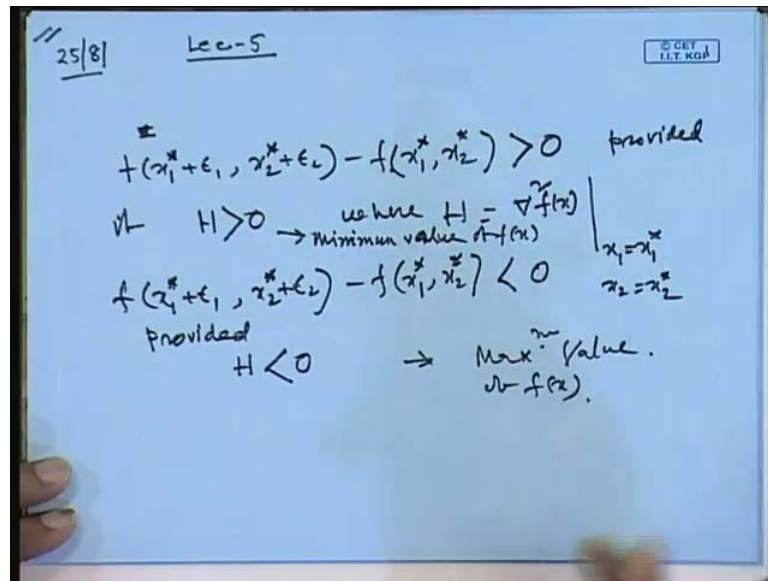 25/8/
Lec-5
© CET
I.I.T. KGP
f(x₁*+ε₁, x₂*+ε₂) - f(x₁*, x₂*) > 0 provided
H > 0 where H = ∇²f(x) |
→ minimun value of f(x)
x₁=x₁*
x₂=x₂*
f(x₁*+ε₁, x₂*+ε₂) - f(x₁*, x₂*) < 0
provided
H < 0 → Maxᵐ Value.
of f(x).